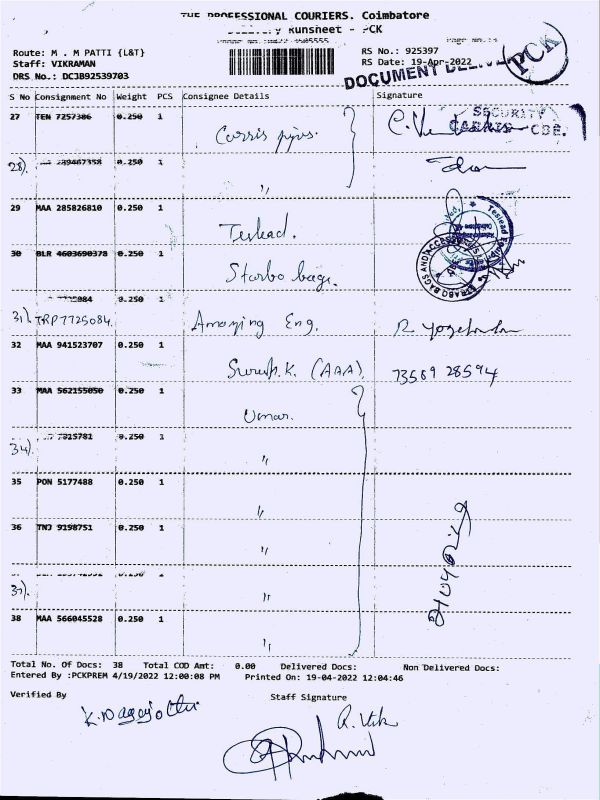 THE PROFESSIONAL COURIERS. Coimbatore
Delivery Runsheet - PCK
Route: M . M PATTI {L&T}
RS No.: 925397
Staff: VIKRAMAN
RS Date: 19-Apr-2022
DRS No.: DC3B92539703
DOCUMENT
PCK
S No Consignment No Weight PCS Consignee Details Signature
27 TEN 7257386 0.250 1
SECURITY
CBE.
28). 0.250 1
"
29 MAA 285826810 0.250 1
Teslead.
30 BLR 4603690378 0.250 1
Starbo bags.
0.250 1
31) TRP7725084. Amazing Eng.
32 MAA 941523707 0.250 1
Suresh.K. (AAA) 73589 28594
33 MAA 562155050 0.250 1
Umar.
34). 7825781 0.250 1
"
35 PON 5177488 0.250 1
"
36 TNJ 9198751 0.250 1
"
37).
"
38 MAA 566045528 0.250 1
"
Total No. Of Docs: 38 Total COD Amt: 0.00 Delivered Docs: Non Delivered Docs:
Entered By :PCKPREM 4/19/2022 12:00:08 PM Printed On: 19-04-2022 12:04:46
Verified By Staff Signature